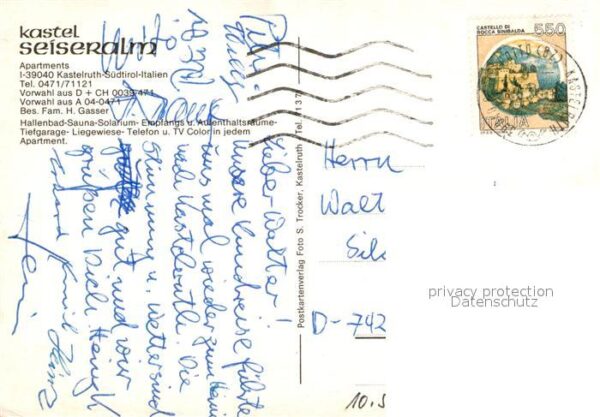 kastel
seiseralm
Apartments
I-39040 Kastelruth-Südtirol-Italien
Tel. 0471/71121
Vorwahl aus D + CH 0039/471
Vorwahl aus A 04-0471
Bes. Fam. H. Gasser
Hallenbad-Sauna-Solarium- Empfangs u. Aufenthaltsräume-
Tiefgarage- Liegewiese- Telefon u. TV Color in jedem
Apartment.
Lieber Walter!
Unsere Rundreise führte
uns mal wieder zum
nach Kastelruth. Die
Stimmung u. Wetter sind
gut und wir
grüßen Dich
Postkartenverlag Foto S. Trocker, Kastelruth Tel. 7137
CASTELLO DI
ROCCA SINIBALDA
550
ITALIA
Herrn
Walt
D-742
10.5
privacy protection
Datenschutz